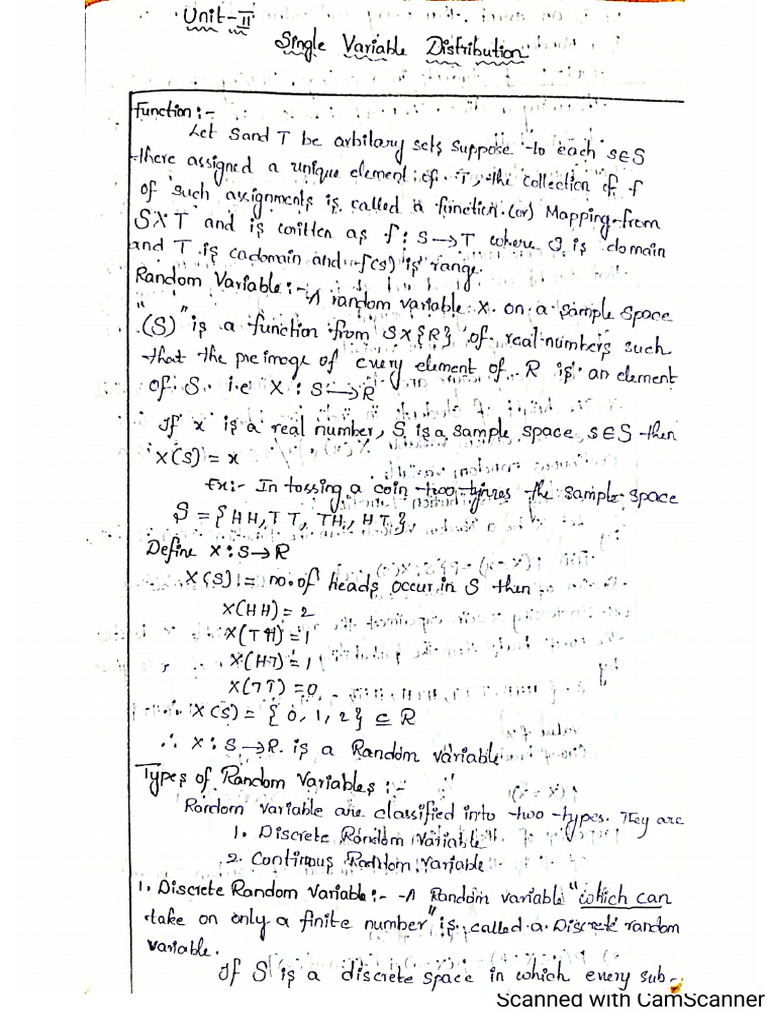 Unit-II
Single Variable Distribution
Function :-
Let S and T be arbitary sets suppose to each s∈S
there assigned a unique element of T, the collection of f
of such assignments is called a function (or) Mapping from
S×T and is written as f : S→T where S is domain
and T is codomain and f(s) is range.
Random Variable :- A random variable X on a sample space
"(S)" is a function from S×{R} of real numbers such
that the pre image of every element of R is an element
of S. i.e X : S→R
If x is a real number, S is a sample space, s∈S then
X(S) = x
Ex:- In tossing a coin two times the sample space
S = {HH, TT, TH, HT}
Define X : S→R
X(S) = no. of heads occur in S then
X(HH) = 2
X(TH) = 1
X(HT) = 1
X(TT) = 0
X(S) = {0, 1, 2} ⊆ R
∴ X : S→R is a Random variable
Types of Random Variables :-
Random variable are classified into two types. They are
1. Discrete Random Variable
2. Continous Random Variable
1. Discrete Random Variable :- A Random variable "which can
take on only a finite number" is called a Discrete random
variable.
If S is a discrete space in which every sub-
Scanned with CamScanner